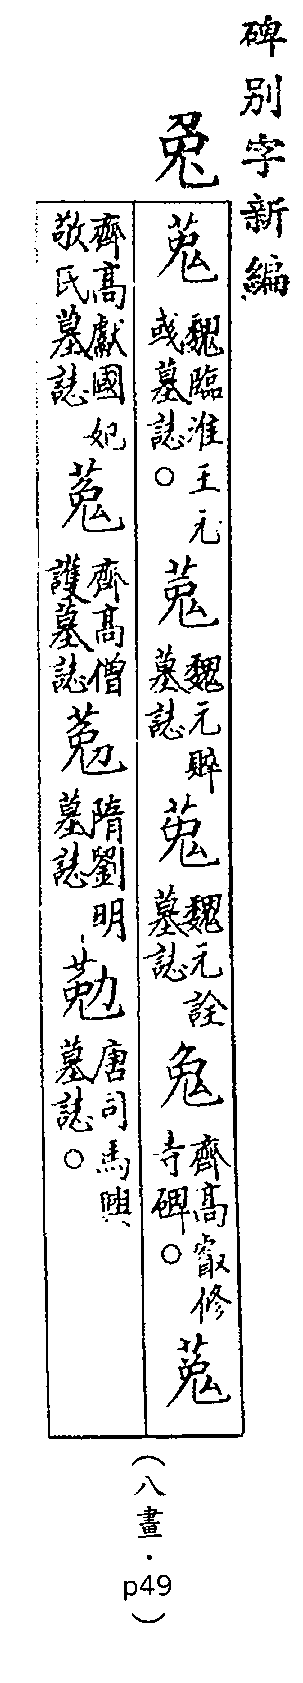 碑別字新編
兔
菟 魏臨淮王元彧墓誌。菟 魏元賥墓誌 菟 魏元詮墓誌 兔 齊高叡修寺碑。菟
齊高獻國妃敬氏墓誌 菟 齊高僧護墓誌 隋劉明墓誌 唐司馬興墓誌。
(八畫・p49)